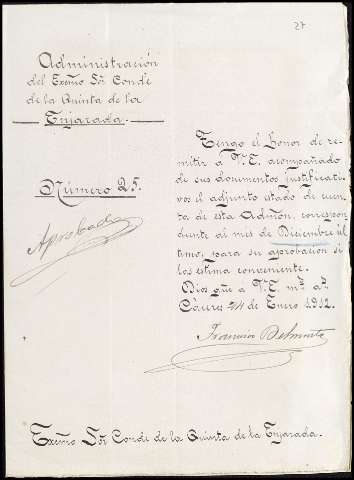 27
Administración
del Excmo Sõr Conde
de la Quinta de la
Enjarada.
Número 25.
Aprobada
Tengo el honor de re-
mitir á V.E. acompañado
de sus documentos justificati-
vos el adjunto estado de cuen-
ta de esta Admõn, correspon-
diente al mes de Diciembre úl-
timo, para su aprobación si
lo estima conveniente.
Dios gũe a V.E. ms as
Cáceres 24 de Enero 1912.
Francisco
Excmo Sõr Conde de la Quinta de la Enjarada.